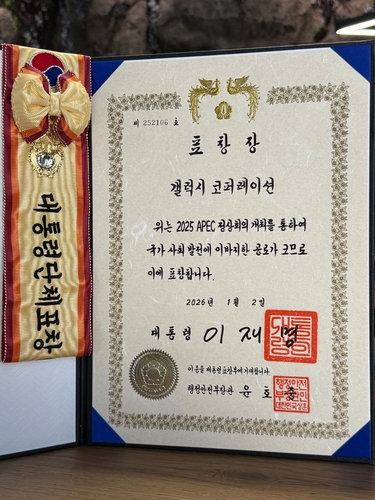 대통령단체표창
제 252166 호
표창장
갤럭시 코퍼레이션
위는 2025 APEC 정상회의 개최를 통하여
국가 사회 발전에 이바지한 공로가 크므로
이에 표창합니다.
2026년 1월 2일
대통령 이재명
이 증을 대통령표창부에 기재합니다.
행정안전부장관 윤호중